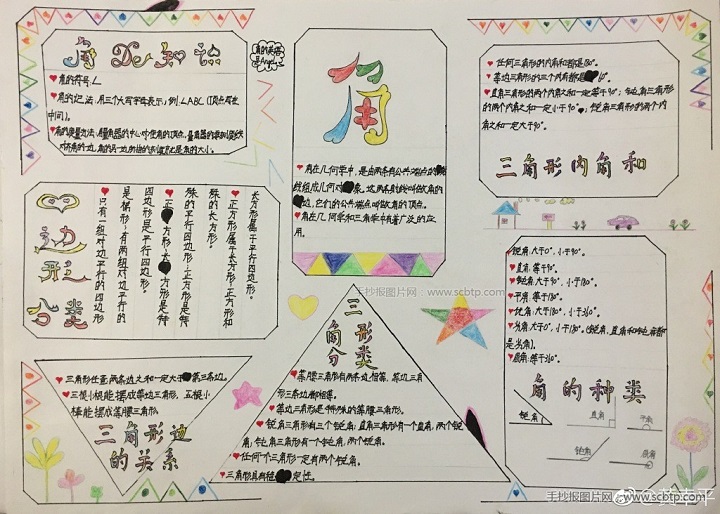 角De知识
♥角的符号:∠
♥角的记法:用三个大写字母表示;例∠ABC(顶点写在
中间)。
角的英语
是Angle
角
♥角在几何学中,是由两条有公共端点的
线组成几何对象,这两条射线叫做角的
边,它们的公共端点叫做角的顶点。
♥角在几何学和三角学中有着广泛的应
用。
♥任何三角形的内角和都是180°。
♥等边三角形的三个内角都是60°。
♥直角三角形的两个内角之和一定等于90°;钝角三角形
的两个内角之和一定小于90°;锐角三角形的两个内
角之和一定大于90°。
三角形内角和
四边形分类
长方形属于平行四边形。
♥正方形属于长方形;正方形和
长方形是特
殊的平行四边形。
四边形是平行四边形。
是梯形;有两组对边平行的
♥只有一组对边平行的四边形
手抄报图片网:www.scbtp.com
三角形分类
♥等腰三角形有两条边相等,等边三角
形三条边都相等。
♥等边三角形是特殊的等腰三角形。
♥锐角三角形有三个锐角;直角三角形有一个直角,两个锐
角;钝角三角形有一个钝角,两个锐角。
♥任何一个三角形一定有两个锐角。
♥三角形具有稳定性。
♥三角形任意两条边之和一定大于第三条边。
♥三根小棒能摆成等边三角形,五根小
棒能摆成等腰三角形。
三角形边
的关系
♥锐角:大于0°,小于90°。
♥直角:等于90°。
♥钝角:大于90°,小于180°。
♥平角:等于180°。
♥优角:大于180°,小于360°。
♥劣角:大于0°,小于180°(锐角,直角和钝角都
是劣角)。
♥周角:等于360°。
角的种类
锐角
直角
平角
钝角
周角
手抄报图片网:www.scbtp.com